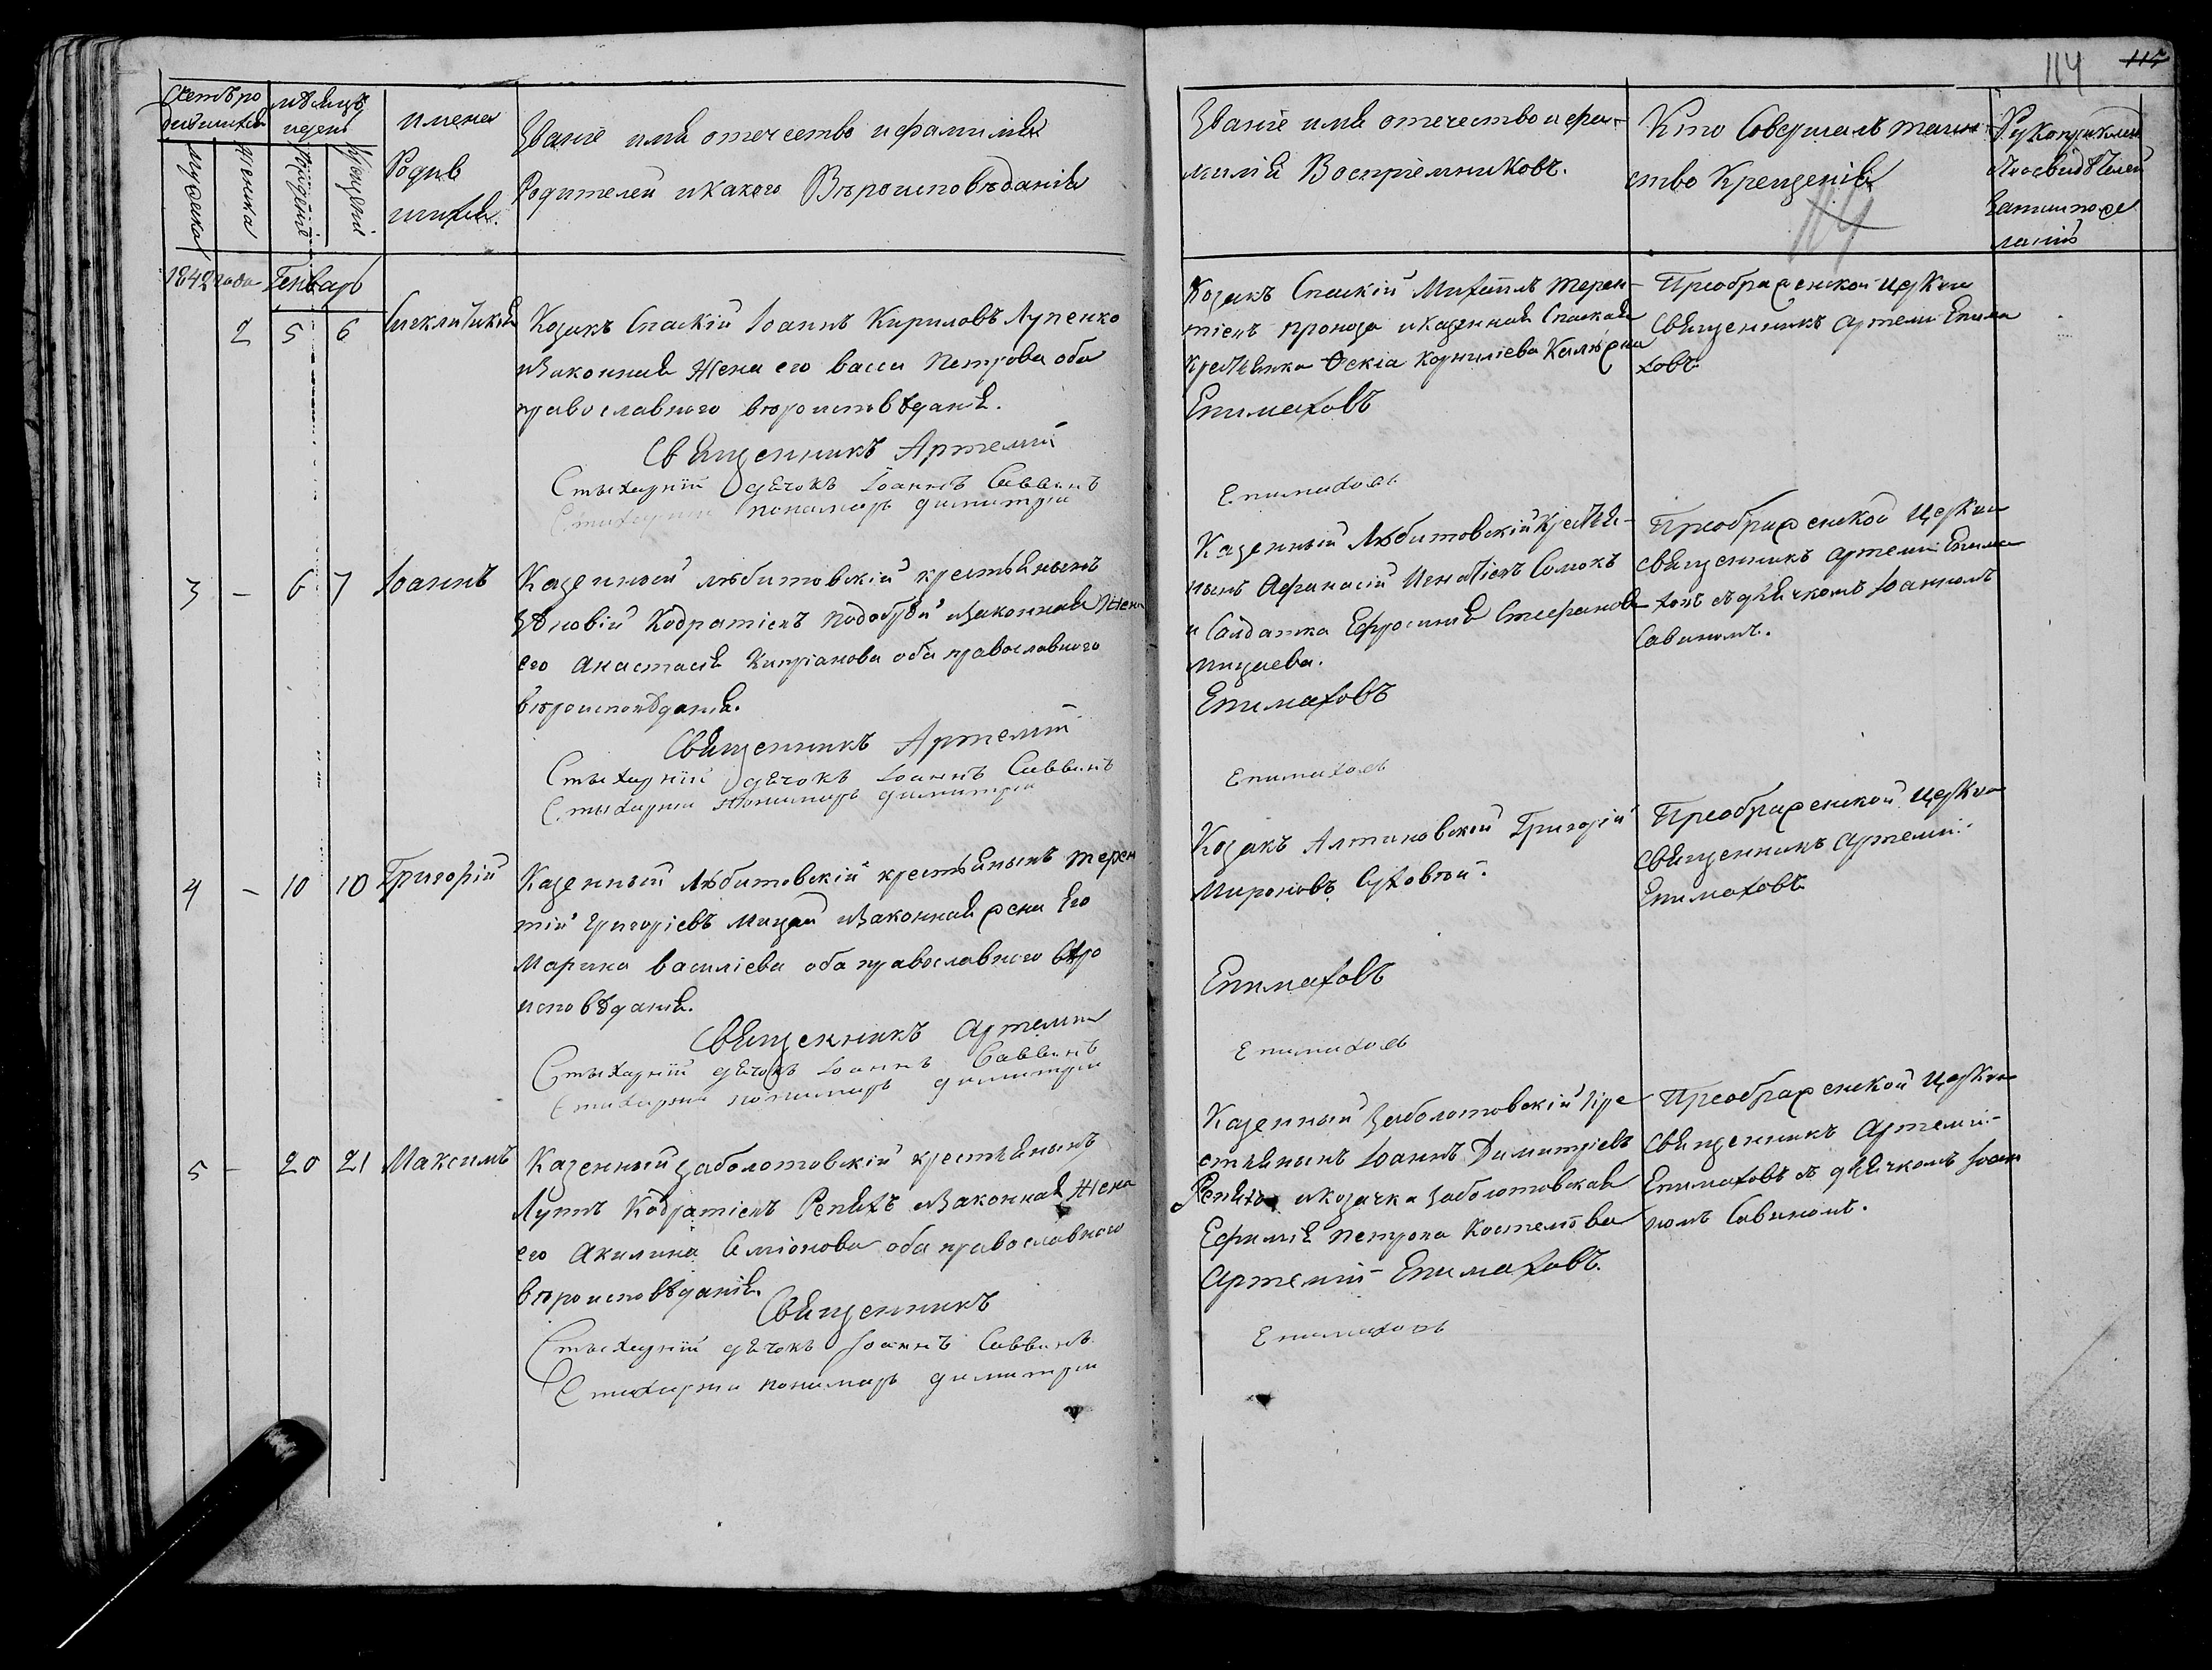 114 115
Счетъ ро
дившихся
мѣсяцъ
и день
имена
Родив
шихся.
Званіе имя отечество и фамилія
Родителей и какого Вѣроисповѣданія
мужеска
женска
рожденіе
крещеніе
Званіе имя отечество и фа-
милія Воспріемниковъ.
Кто Совершалъ таин
ство Крещенія
114
Рукоприклад
ство свидѣтелей
записи по же
ланію
1842 года Генварь
2 5 6
Козакъ Спаскій Іоаннъ Кириловъ Лупенко
и Законная Жена его васса Петрова оба
православного вѣроисповѣданія.
Священникъ Артемій
Стыхарній дячокъ Іоаннъ Саввинъ
Стихарни пономарь димитри
Козакъ Спаскій Михаилъ терен-
тіевъ пронода и казенная Спаская
крестьянка Ѳекла Корниліева
Епимаховъ
Епимаховъ
Преображенской церкви
Священникъ Артеми Епима
ховъ
3 - 6 7 Іоаннъ
Казенный любитовскій крестьянинъ
Зѣновій Кодратіевъ Подобрѣй и Законная Жена
его Анастасія Кипріанова оба православного
вѣроисповѣданія.
Священникъ Артемій
Стыхарній дячокъ Іоаннъ Саввинъ
Стыхарни пономарь димитри
Казенный Любитовскій Крестья-
нинъ Афанасій Игнатіевъ Сомокъ
и Солдатка Ефросинія Стефанова
Мицаева.
Епимаховъ
Епимаховъ
Преображенской Церкви
священникъ Артеми Епима
ховъ съ дячкомъ Іоанномъ
Савиномъ.
4 - 10 10 Григорій
Казенный Любитовскій крестьянинъ терен
тій Григоріевъ Мицай и Законная жена Его
Марина василіева оба православного вѣро
исповѣданія.
Священникъ Артеми
Стыхарній дячокъ Іоаннъ Саввинъ
Стихарни пономарь димитри
Козакъ Алтиновской Григорій
Мироновъ Суховѣй.
Епимаховъ
Епимаховъ
Преображенской Церкви
Священникъ Артемій
Епимаховъ
5 - 20 21 Максимъ
Казенный заболотовскій крестьянинъ
Лупъ Кодратіевъ Репяхъ и Законная Жена
его Акилина Симіонова оба православного
вѣроисповѣданія.
Священникъ
Стыхарній дячокъ Іоаннъ Саввинъ
Стихарни пономарь димитри
Казенный Заболотовскій Кре
стьянинъ Іоаннъ Димитріевъ
Репяхъ и козачка Заболотовская
Ефимія Петрова
Артемій Епимаховъ.
Епимаховъ
Преображенской Церкви
Священникъ Артемій
Епимаховъ съ дячкомъ Іоан
номъ Савиномъ.